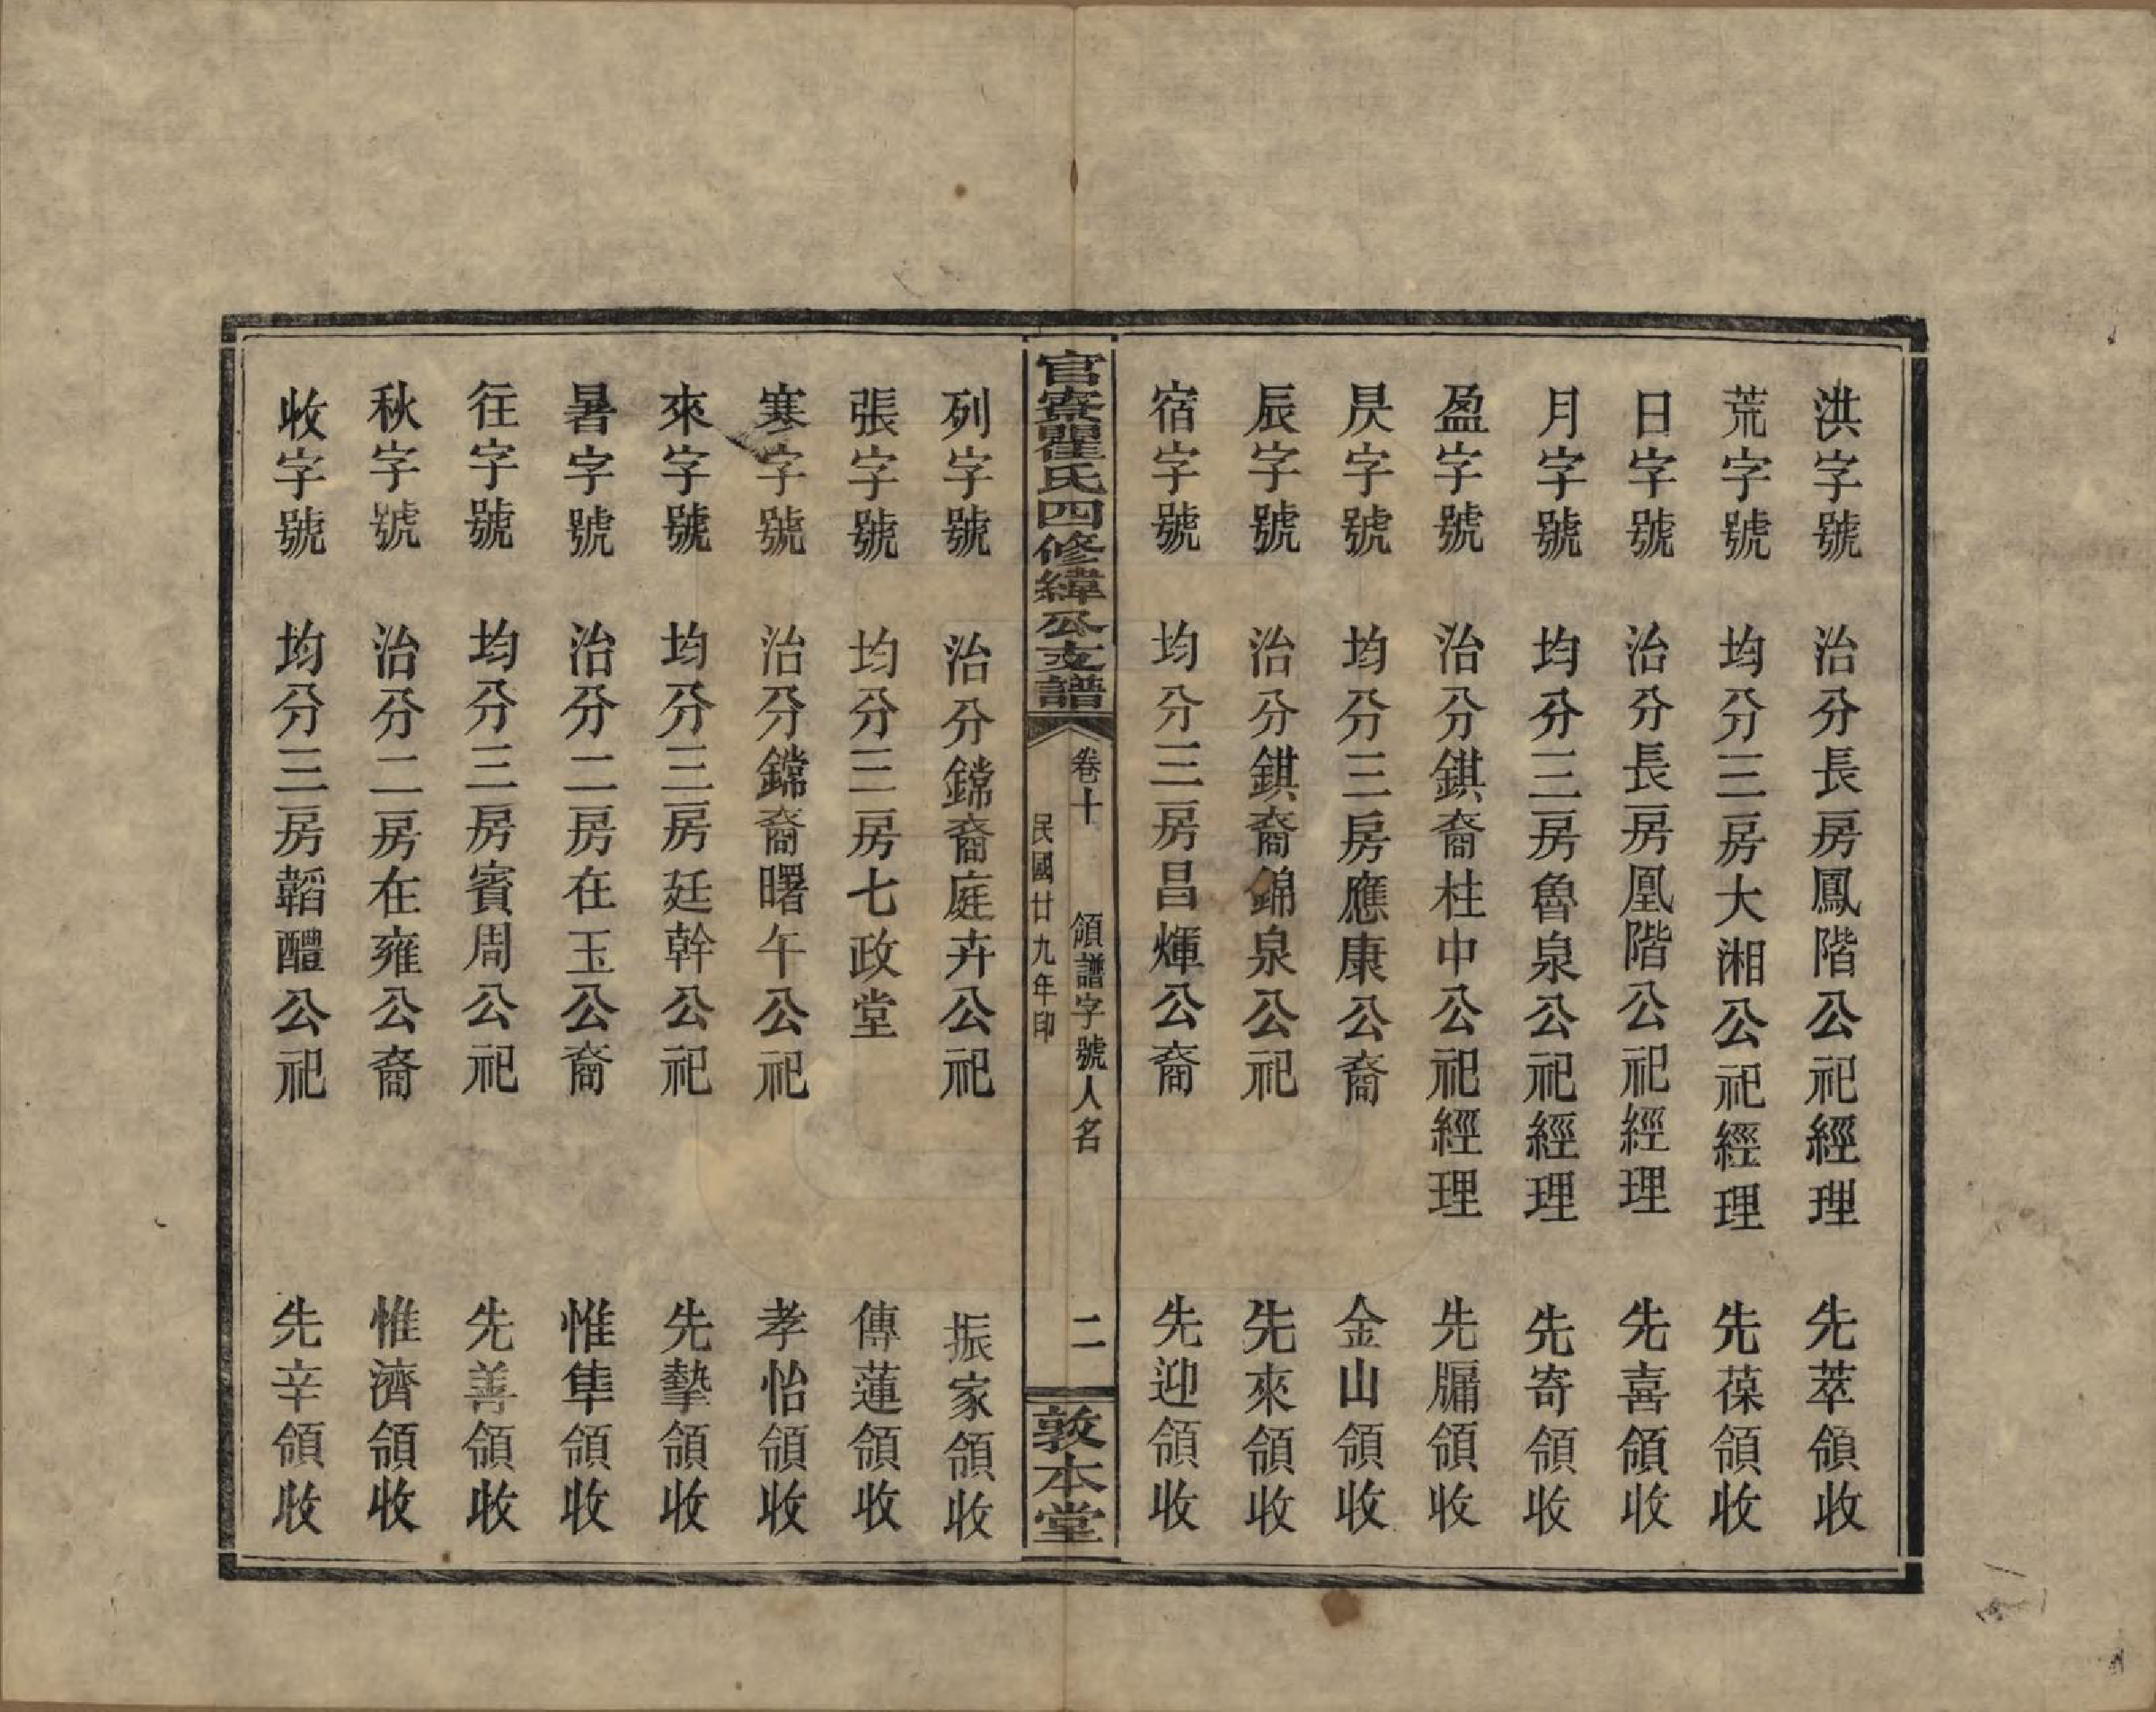 洪字號 治分長房鳳階公祀經理 先萃領收
荒字號 均分三房大湘公祀經理 先葆領收
日字號 治分長房凰階公祀經理 先喜領收
月字號 均分三房魯泉公祀經理 先寄領收
盈字號 治分錤裔柱中公祀經理 先牗領收
昃字號 均分三房應康公裔 金山領收
辰字號 治分錤裔錦泉公祀 先來領收
宿字號 均分三房昌煇公裔 先迎領收
官寮瞿氏四修緯公支譜 卷十 領譜字號人名 二 敦本堂
民國廿九年印
列字號 治分鐺裔庭卉公祀 振家領收
張字號 均分三房七政堂 傳蓮領收
寒字號 治分鐺裔曙午公祀 孝怡領收
來字號 均分三房廷幹公祀 先摯領收
暑字號 治分二房在玉公裔 惟隼領收
往字號 均分三房賓周公祀 先善領收
秋字號 治分二房在雍公裔 惟濟領收
收字號 均分三房韜醴公祀 先辛領收